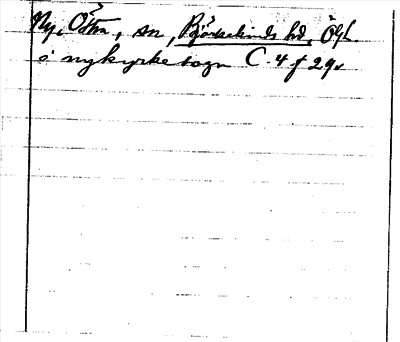 Ny, Östra, sn, Björkekinds hd, Ögl.
i nykyrke sogn C.4 f 29v